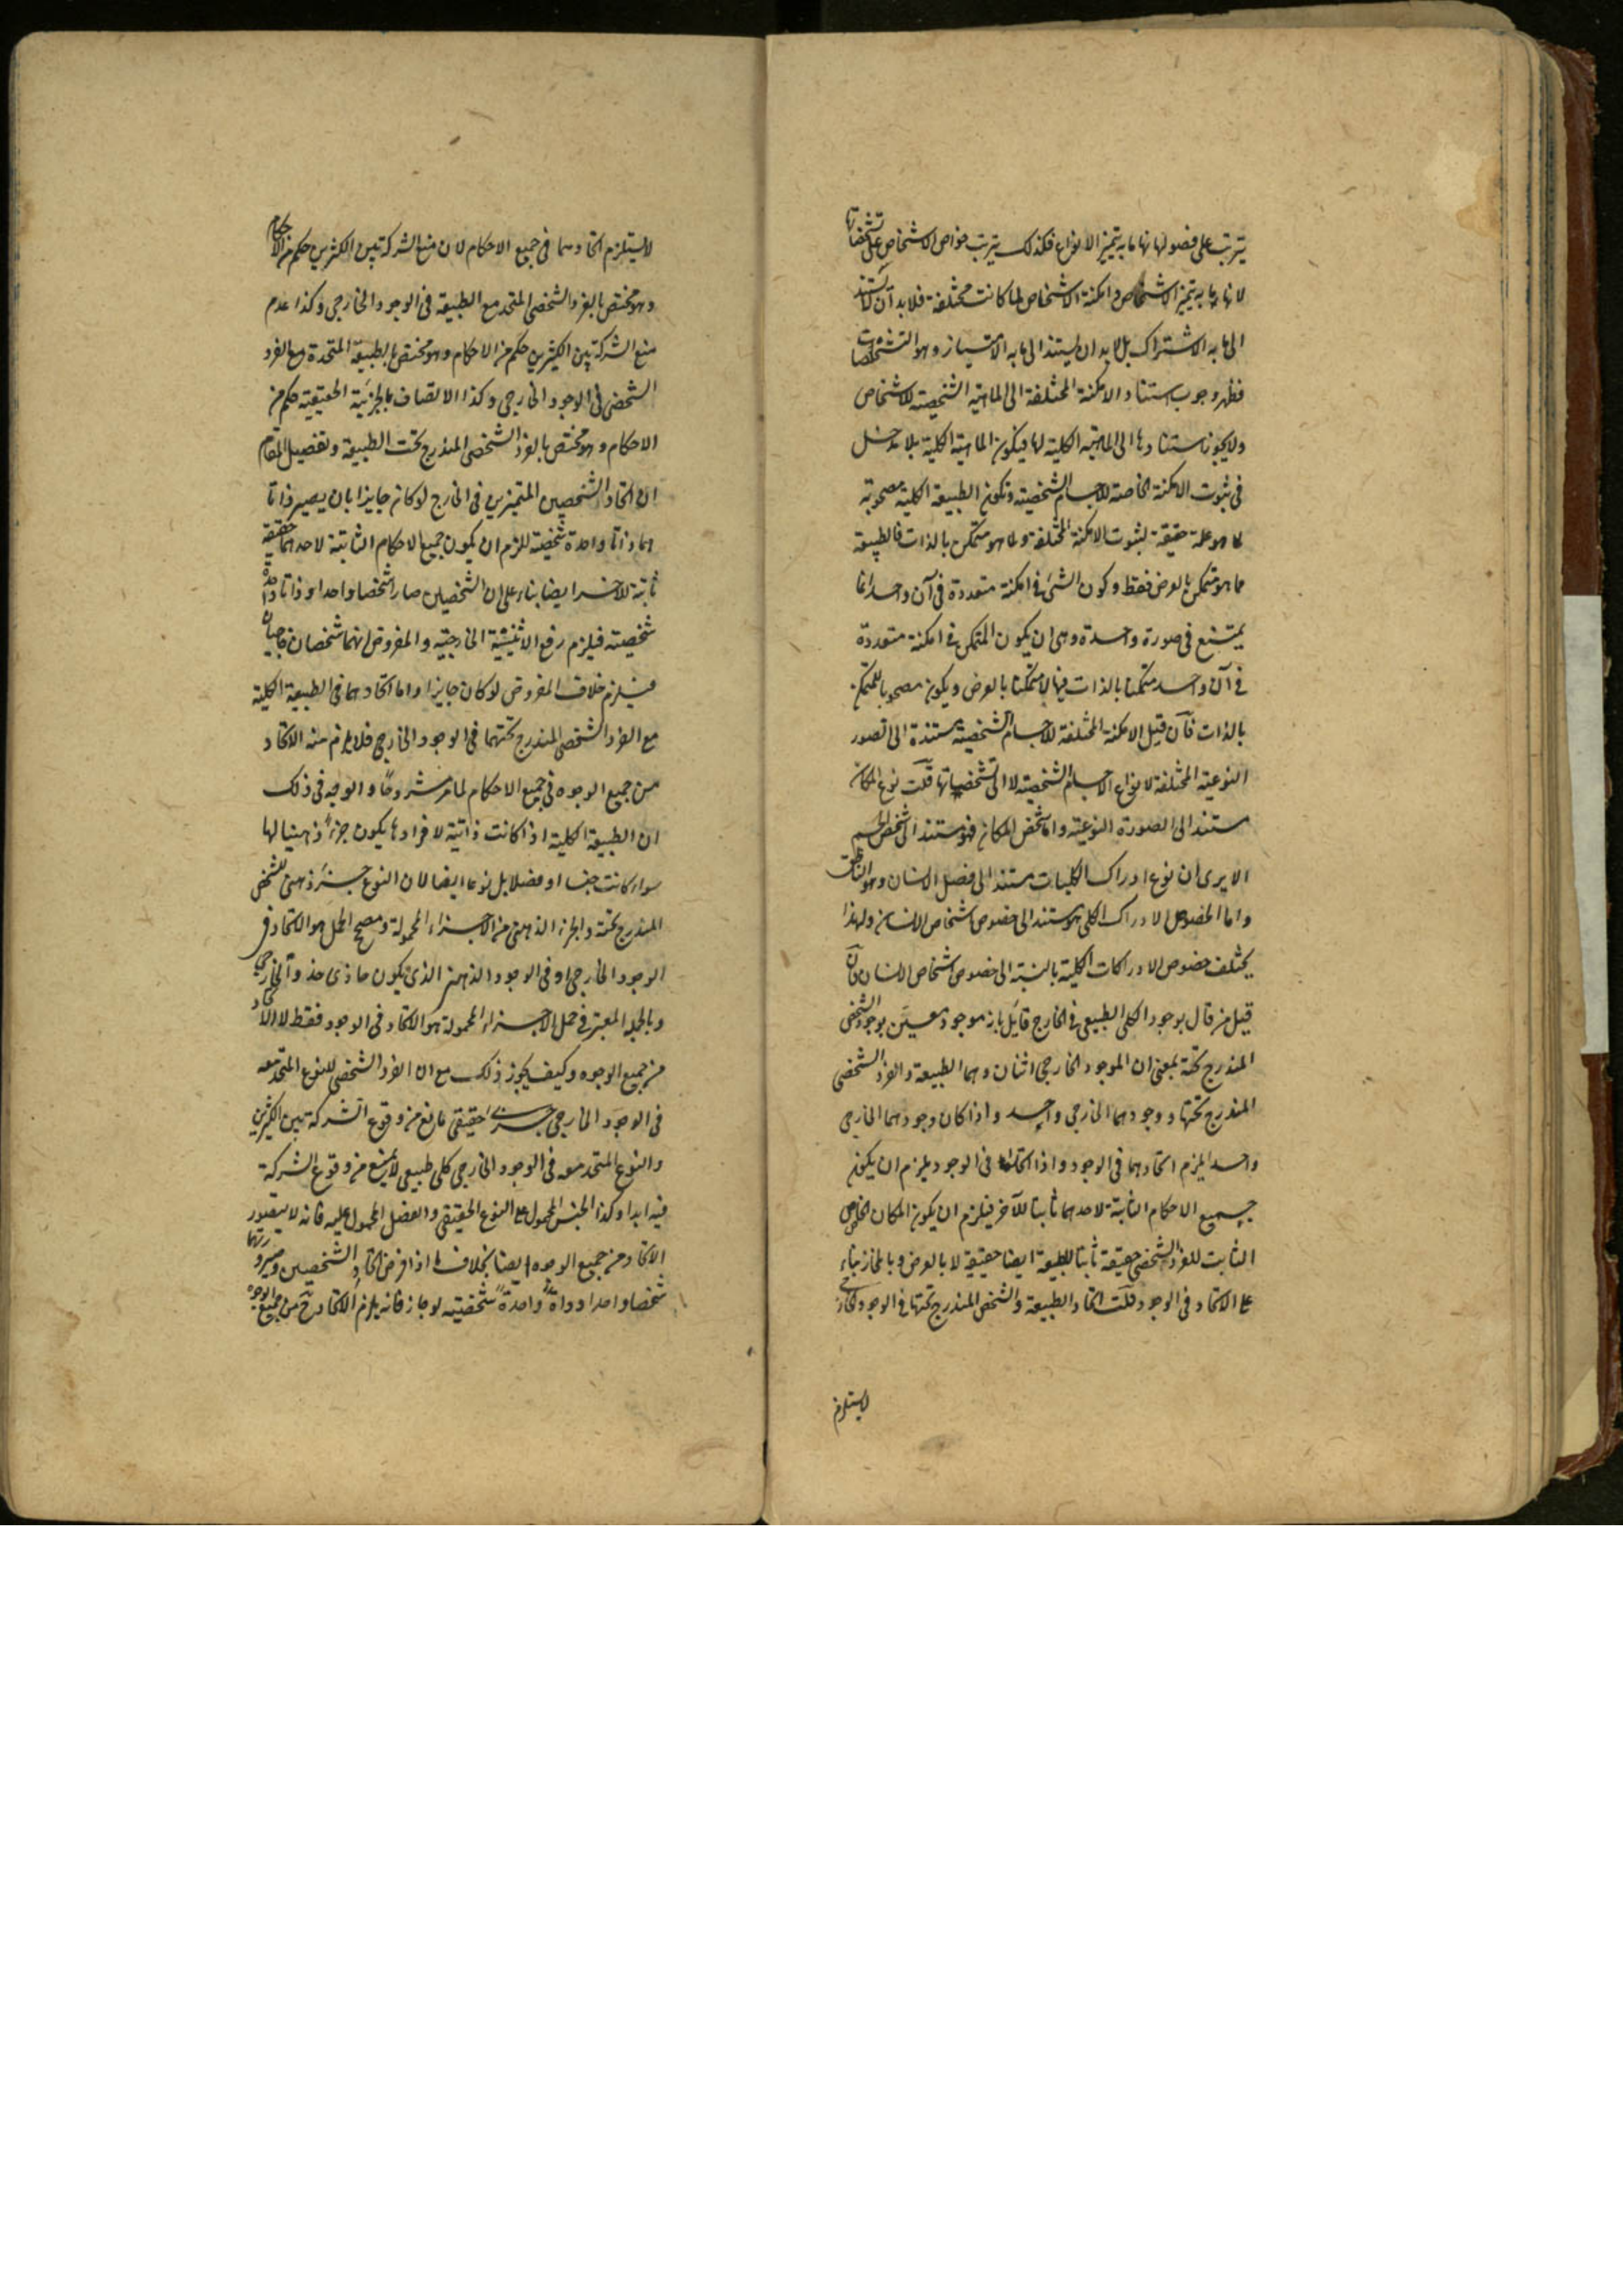 يترتب على فصولها لانها ما به يتميز الانواع فكذلك يترتب خواص الاشخاص على تشخصاتها
لانها ما به يتميز الاشخاص وامكنة الاشخاص لما كانت مختلفة فلا بد ان لا يستند
الى ما به الاشتراك بل لا بد ان يستند الى ما به الامتياز وهو التشخصات
فظهر وجوب استناد الامكنة المختلفة الى الماهية الشخصية للاشخاص
ولا يجوز استنادها الى الماهية الكلية لها فيكون الماهية الكلية بلا مدخل
فى ثبوت الامكنة الخاصة للاجسام الشخصية وتكون الطبيعة الكلية مصحوبة
لما هو علة حقيقة لثبوت الامكنة المختلفة ولما هو متمكن بالذات فالطبيعة
مما هو متمكن بالعرض فقط وكون الشئ فى امكنة متعددة فى آن واحد انما
يمتنع فى صورة واحدة وهى ان يكون المتمكن فى امكنة متعددة
فى آن واحد متمكنا بالذات فيها لا متمكنا بالعرض ويكون مصحوبا للمتمكن
بالذات فان قيل الامكنة المختلفة للاجسام الشخصية مستندة الى الصور
النوعية المختلفة لانواع الاجسام الشخصية لا الى تشخصياتها قلت نوع المكان
مستند الى الصورة النوعية واما شخص المكان فهو مستند الى شخص الجسم
الا يرى ان نوع ادراك الكليات مستند الى فصل الانسان وهو الناطق
واما الخصوص لادراك الكلى فهو مستند الى خصوص اشخاص الانسان ولهذا
يختلف خصوص الادراكات الكلية بالنسبة الى خصوص اشخاص الانسان فان
قيل من قال بوجود الكلى الطبيعى فى الخارج قائل بانه موجود معين بوجود الشخص
المندرج تحته بمعنى ان الموجود الخارجى اثنان وهما الطبيعة والفرد الشخصى
المندرج تحتها ووجودهما الخارجى واحد واذا كان وجودهما الخارجى
واحدا يلزم اتحادهما فى الوجود واذا اتحدا فى الوجود يلزم ان يكون
جميع الاحكام الثابتة لاحدهما ثابتا للآخر فيلزم ان يكون المكان الخاص
الثابت للفرد الشخصى حقيقة ثابتا للطبيعة ايضا حقيقة لا بالعرض وبالمجاز بناء
على الاتحاد فى الوجود قلت اتحاد الطبيعة والشخص المندرج تحتها فى الوجود الخارجى
لا يستلزم
لا يستلزم اتحادهما فى جميع الاحكام لان منع الشركة بين الكثيرين حكم من الاحكام
وهو مختص بالفرد الشخصى المتحد مع الطبيعة فى الوجود الخارجى وكذا عدم
منع الشركة بين الكثيرين حكم من الاحكام وهو مختص بالطبيعة المتحدة مع الفرد
الشخصى فى الوجود الخارجى وكذا الاتصاف بالجزئية الحقيقية حكم من
الاحكام وهو مختص بالفرد الشخصى المندرج تحت الطبيعة وتفصيل المقام
ان اتحاد الشخصين المتميزين فى الخارج لو كان جايزا بان يصير ذاتا
هما ذاتا واحدة شخصية للزم ان يكون جميع الاحكام الثابتة لاحدهما حقيقة
ثابتة للآخر ايضا بناء على ان الشخصين صارا شخصا واحدا وذاتا واحدة
شخصية فيلزم رفع الاثنينية الخارجية والمفروض انهما شخصان خارجيان
فيلزم خلاف المفروض لو كان جايزا واما اتحادهما فى الطبيعة الكلية
مع الفرد الشخصى المندرج تحتهما فى الوجود الخارجى فلا يلزم منه الاتحاد
من جميع الوجوه فى جميع الاحكام لما مر مشروحا والوجه فى ذلك
ان الطبيعة الكلية اذا كانت ذاتية لافرادها يكون جزءا ذهنيا لها
سواء كانت جنسا او فصلا بل نوعا ايضا لان النوع جزء ذهنى للشخص
المندرج تحته والجزء الذهنى من الاجزاء المحمولة ومصحح الحمل هو الاتحاد فى
الوجود الخارجى او فى الوجود الذهنى الذى يكون حاذى حذو الخارجى
وبالجملة المعتبر فى حمل الاجزاء المحمولة هو الاتحاد فى الوجود فقط لا الاتحاد
من جميع الوجوه وكيف يجوز ذلك مع ان الفرد الشخصى للنوع المتحد معه
فى الوجود الخارجى جزئى حقيقى مانع من وقوع الشركة بين الكثيرين
والنوع المتحد معه فى الوجود الخارجى كلى طبيعى لا يمنع من وقوع الشركة
فيه ابدا وكذا الجنس المحمول على النوع الحقيقى والفصل المحمول عليه فانه لا يتصور
الاتحاد من جميع الوجوه ايضا بخلاف ما اذا فرض اتحاد الشخصين وصيرورتهما
شخصا واحدا وذاتا واحدة شخصية لو جاز فانه يلزم الاتحاد ح من جميع الوجوه